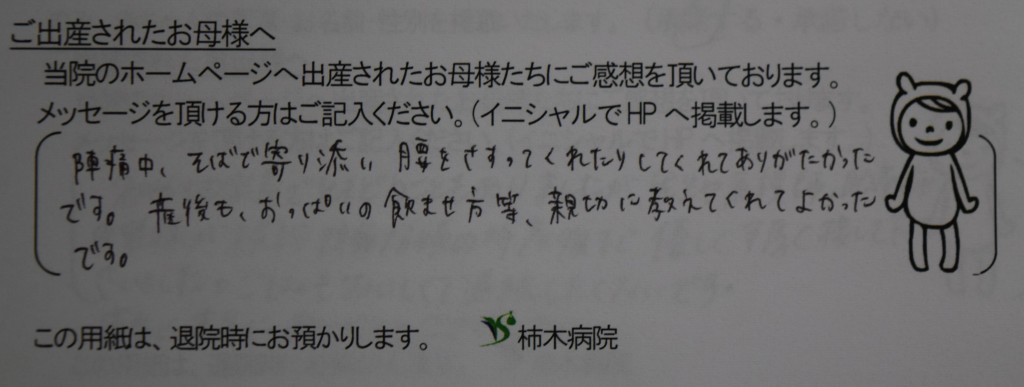 ご出産されたお母様へ
当院のホームページへ出産されたお母様たちにご感想を頂いております。
メッセージを頂ける方はご記入ください。(イニシャルでHPへ掲載します。)
陣痛中、そばで寄り添い腰をさすってくれたりしてくれてありがたかった
です。産後も、おっぱいの飲ませ方等、親切に教えてくれてよかった
です。
この用紙は、退院時にお預かりします。 柿木病院